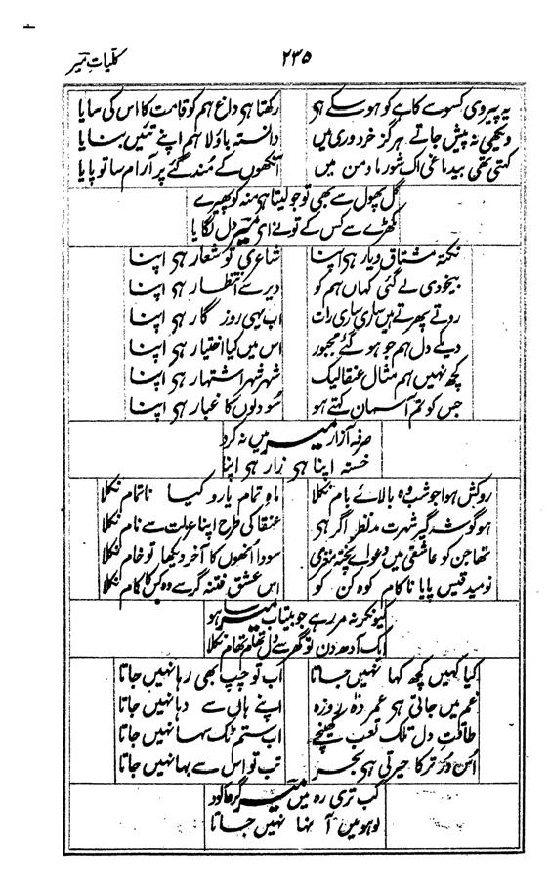 کلیاتِ میر
۲۳۵
یہ پیروی کسو سے کاہے کو ہو سکے ہی رکھتا ہی داغ ہم کو قامت کا اس کی سایا
دیکھی نہ پیش جاتے ہرگز خرد وری میں دانستہ باؤلا ہم اپنے تئیں بنایا
کہتی تھی بیدماغی اک شور ما و من میں آنکھوں کے مند گئے پر آرام سا تو پایا
گل پھول سے بھی تو جو لیتا ہی منہ کو پھیرے
مکھڑے سے کس کے تونے ای میر دل لگایا
نکتہ مشتاق و یار ہی اپنا شاعری تو شعار ہی اپنا
بیخودی لے گئی کہاں ہم کو دیر سے انتظار ہی اپنا
روتے پھرتے ہیں ساری ساری رات اب یہی روزگار ہی اپنا
دیکے دل ہم جو ہو گئے مجبور اس میں کیا اختیار ہی اپنا
کچھ نہیں ہم مثال عنقا لیک شہر شہر اشتہار ہی اپنا
جس کو تم آسمان کہتے ہو سو دلوں کا غبار ہی اپنا
صرفہ آزار میر میں نہ کرو
خستہ اپنا ہی زار ہی اپنا
روکش ہوا جو شب وہ بالائے بام نکلا ماہِ تمام یارو کیا ناتمام نکلا
ہو گوشہ گیر شہرت مدنظر اگر ہی عنقا کی طرح اپنا عزلت سے نام نکلا
تھا جن کو عاشقی میں دعواے پختہ مغزی سودا انھوں کا آخر دیکھا تو خام نکلا
نومید قیس پایا ناکام کوہ کن کو اس عشق فتنہ گر سے وہ کس کا کام نکلا
کیونکر نہ مر رہے جو بیتاب میر سا ہو
ایک آدھ دن تو گھر سے دل تھام تھام نکلا
کیا کہیں کچھ کہا نہیں جاتا اب تو چپ بھی رہا نہیں جاتا
غم میں جاتی ہی عمر دہ روزہ اپنے ہاں سے دہا نہیں جاتا
طاقتِ دل تلک تعب کھینچے اب ستم ٹک سہا نہیں جاتا
اس در تر کا حیرتی ہی بحر تب تو اس سے بہا نہیں جاتا
کب تری رہ میں میر گرد آلود
لوہو میں آ نہا نہیں جاتا